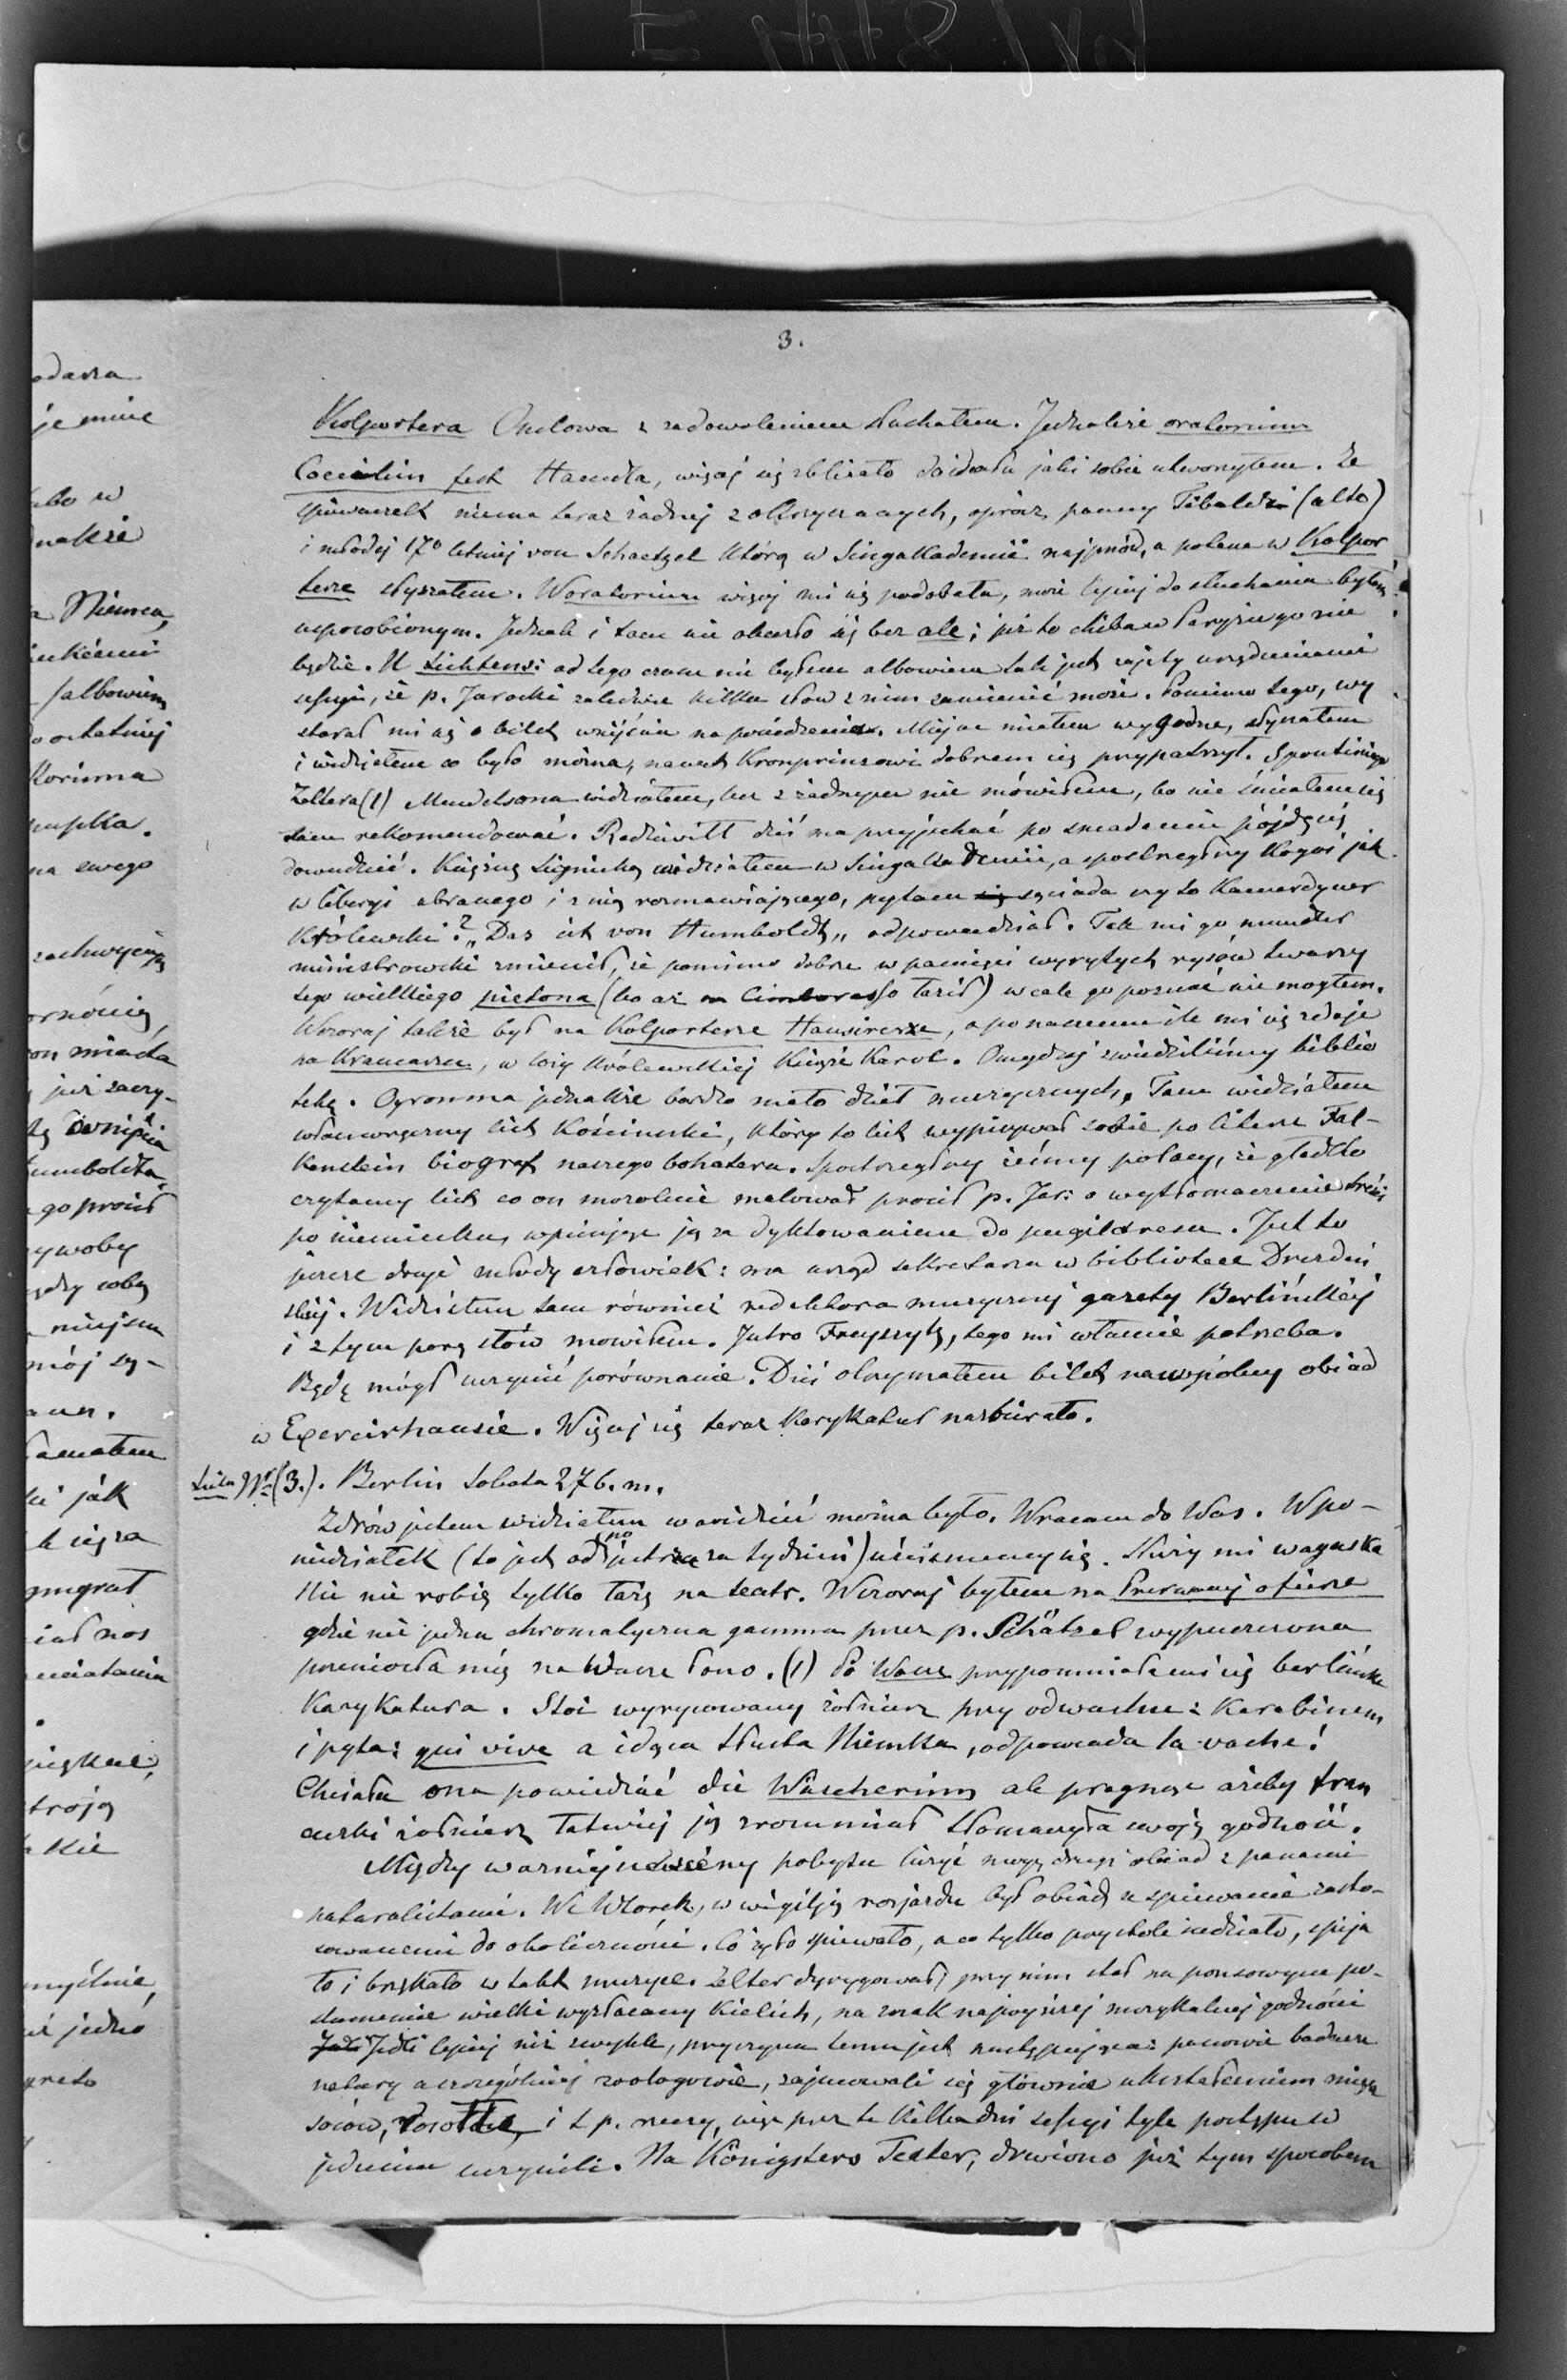 3.
Kolportera Onslowa z zadowoleniem słuchałem. Jednakże oratorium
Coecilien fest Haendla, więcej się zbliżało do ideału jaki sobie utworzyłem. Ze
śpiewaczek niema teraz żadnej z olbrzymich, oprócz panny Tibaldi (alto)
i młodej 17o letniej von Schaetzel którą w Singakademii najprzód, a potem w Kolpor
terze słyszałem. W oratorium więcej mi się podobała, może lepiej do słuchania byłem
usposobionym. Jednak i tam nie obeszło się bez ale; już to chiba w Paryżu go nie
będzie. U Lichtens: od tego czasu nie byłem albowiem tak jest zajęty urządzeniami
sessyi, że p. Jarocki zaledwie kilka słow z nim zamienić może. Pomimo tego, wy
starał mi się o bilet wnijścia na posiedzenie. Miejsce miałem wygodne, słyszałem
i widziałem co było można, nawet Kronprinzowi dobrzem się przypatrzył. Spontiniego
Zeltera (1) Mendelsona widziałem, lecz z żadnym nie mówiłem, bo nie śmiałem się
sam rekomendować. Radziwiłł dziś ma przyjechać po śniadaniu pójdę się
dowiedzieć. Księżnę Lignicką widziałem w Singakademii, a spostrzegłszy kogoś jak
w liberyi ubranego i z nią rozmawiającego, pytam się sąsiada czy to Kamerdyner
Królewski? „Das ist von Humboldt„ odpowiedział. Tak mi go mundur
ministrowski zmienił, że pomimo dobrze w pamięci wyrytych rysów twarzy
tego wielkiego pietona (bo aż na Cimborasso łaził) wcale go poznać nie mogłem.
Wczoraj także był na Kolporterze Hausirerze, a po naszemu ile mi się zdaje
na Kramarzu, w loży Królewskiej Książe Karol. Onegdaj zwiedziliśmy biblio
tekę. Ogromna jednakże bardzo mało dzieł muzycznych. Tam widziałem
własnoręczny list Kościuszki, który to list wypisywał sobie po literze Fal-
kenstein biograf naszego bohatera. Spostrzegłszy żeśmy polacy, że gładko
czytamy list co on mozolnie malował prosił p. Jar: o wytłomaczenie treści
po niemiecku, wpisując ją za dyktowaniem do pugilaresu. Jest to
jeszcze dosyć młody człowiek: ma urząd sekretarza w bibliotece Drezdeń
skiej. Widziałem tam również redaktora muzycznej gazety Berlińskiej
i z tym parę słów mowiłem. Jutro Freyszytz, tego mi właśnie potrzeba.
Będę mógł uczynić porównanie. Dziś otrzymałem bilet na wspólny obiad
w Exercirhausie. Więcej się teraz karykatur nazbierało.
Lista Nr (3.). Berlin Sobota 27 b. m.
Zdrów jestem widziałem co widzieć można było. Wracam do Was. W po-
niedziałek (to jest od pojutrza za tydzień) uściśniemy się. Służy mi waguska
Nic nie robię tylko łażę na teatr. Wczoraj byłem na Przerwanej ofierze
gdzie nie jedna chromatyczna gamma przez p. Schätzel wypuszczona
przeniosła mię na Wasze łono. (1) To Wasze przypomniała mi się berlińska
Karykatura. Stoi wyrysowany żołnierz przy odwachu z Karabinem
i pyta: qui vive a idąca tłusta Niemka, odpowiada la vache!
Chciała ona powiedzieć die Wäscherinn ale pragnąc ażeby fran
cuski żołnierz łatwiej ją zrozumiał tłomaczyła swoją godność.
Między ważniejsze sceny pobytu liczyć mogę drugi obiad z panami
naturalistami. We Wtorek, w wigilją rozjazdu był obiad ze śpiewami zasto-
sowanemi do okoliczności. Co żyło śpiewało, a co tylko przy stole siedziało, spija
ło i brzękało w takt muzyce. Zelter dyrygował, przy nim stał na ponsowym po-
stumencie wielki wyzłacany Kielich, na znak najwyższej muzykalnej godności
Jedli lepiej niż zwykle, przyczyna temu jest następująca: panowie badacze
natury a szczególniej zoologowie, zajmowali się głównie ukształceniem mięsa
sosów, rosołów, i t p. rzeczy, więc przez te kilka dni sessyi tyle postępu w
jedzeniu uczynili. Na Königsters Teater, drwiono już tym sposobem